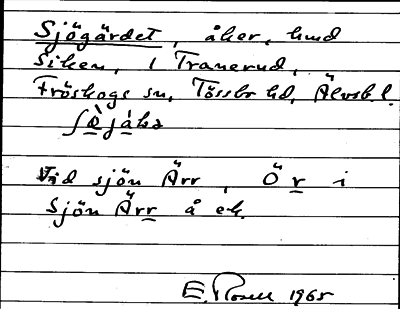 Sjögärdet, åker, hmd
Siken, i Tranerud,
Fröskogs sn, Tössbo hd, Älvsb. l.
Vid sjön Ärr, Ör i
sjön Ärr å ek.
E. Rosell 1965